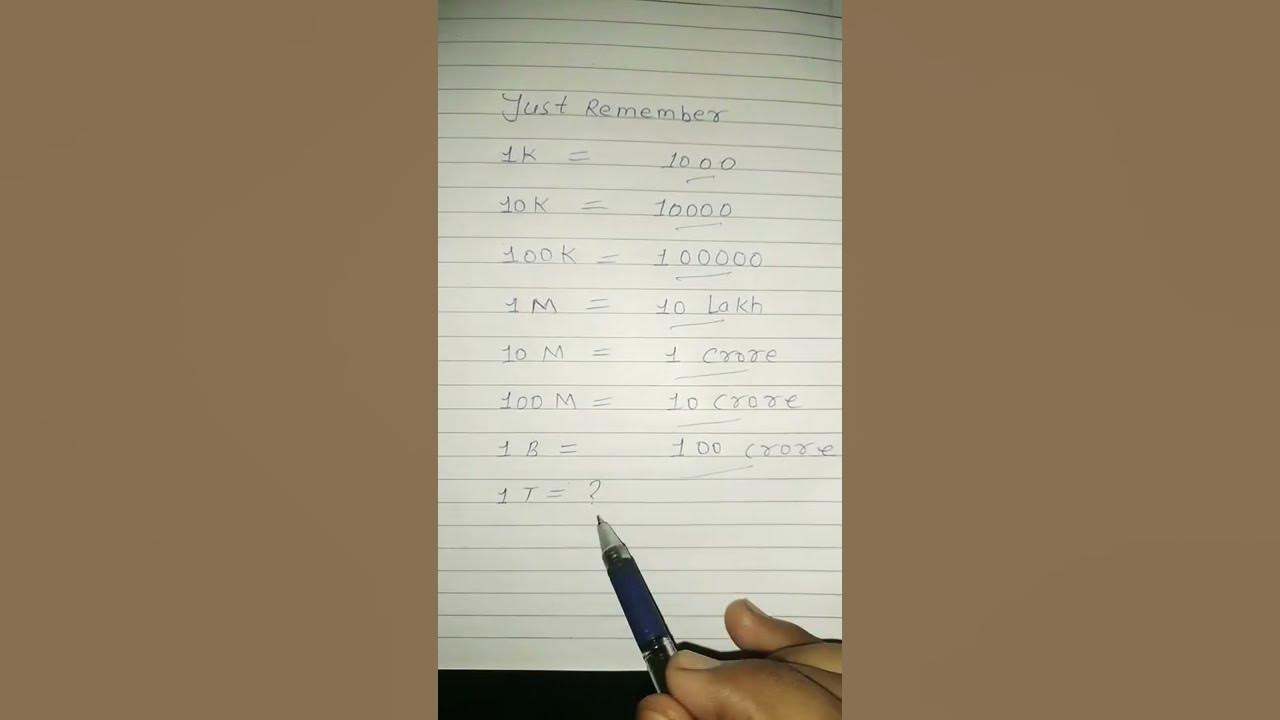 Just Remember
1K = 1000
10K = 10000
100K = 100000
1M = 10 Lakh
10 M = 1 Crore
100 M = 10 Crore
1 B = 100 Crore
1 T = ?